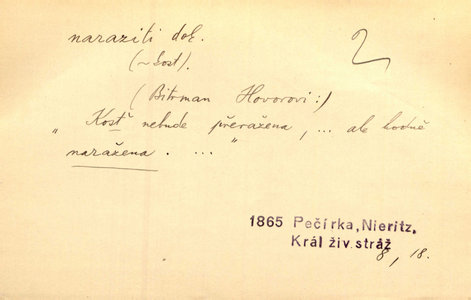 naraziti dok.
2
(~ kost).
(Bitrman Hovorovi:)
„Kosť nebude přeražena, ... ale hodně
naražena. ..."
1865 Pečírka, Nieritz,
Král živ. stráž
8, 18.